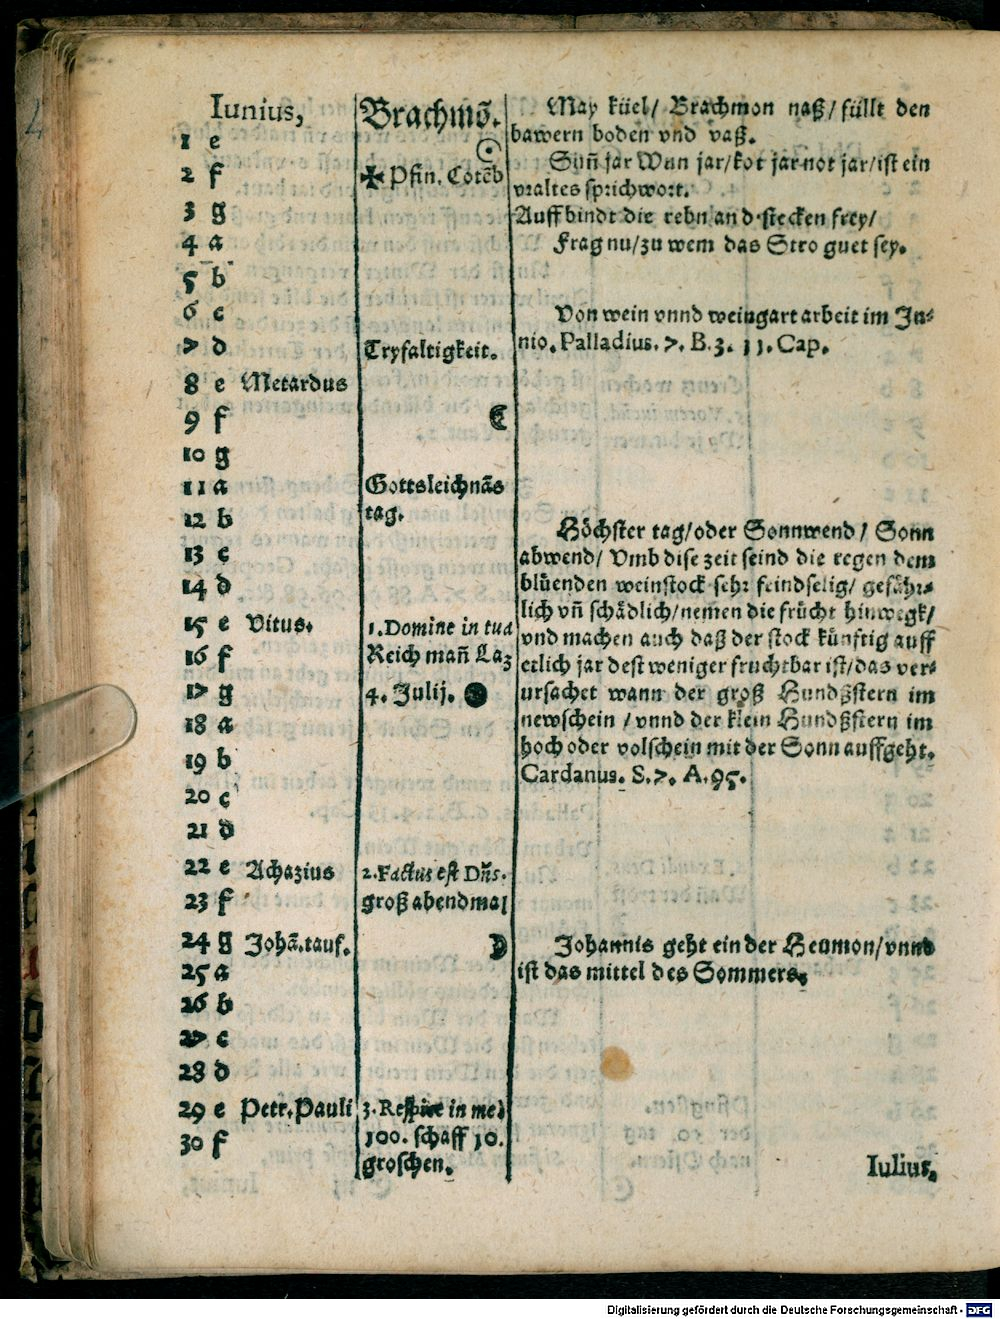 Iunius, Brachmō.
1 e
2 f ✠ Pfin. Cotēb
3 g
4 a
5 b
6 c
7 d Tryfaltigkeit.
8 e Metardus
9 f ☾
10 g
11 a Gottsleichnās
12 b tag.
13 c
14 d
15 e Vitus. 1. Domine in tua
16 f Reich mañ Laz
17 g 4. Julij. ●
18 a
19 b
20 c
21 d
22 e Achazius 2. Factus est Dñs.
23 f groß abendmal
24 g Johā. tauf. ☽
25 a
26 b
27 c
28 d
29 e Petr. Pauli 3. Respice in me
30 f 100. schaff 10.
groschen.
May küel/ Brachmon naß/ füllt den
bawern boden vnd vaß.
Suñ jar Wun jar/ kot jar not jar/ ist ein
vraltes sprichwort.
Auffbindt die rebn an d stecken frey/
Frag nu/ zu wem das Stro guet sey.
Von wein vnnd weingart arbeit im Ju-
nio. Palladius. 7. B. 3. 11. Cap.
Höchster tag/ oder Sonnwend/ Sonn
abwend/ Vmb dise zeit seind die regen dem
blüenden weinstock sehr feindselig/ gefähr-
lich vñ schädlich/ nemen die frücht hinwegk/
vnd machen auch daß der stock künftig auff
etlich jar dest weniger fruchtbar ist/ das ver-
ursachet wann der groß Hundßstern im
newschein / vnnd der klein Hundßstern im
hoch oder volschein mit der Sonn auffgeht.
Cardanus. S. 7. A. 95.
Johannis geht ein der Heumon/ vnnd
ist das mittel des Sommers.
Iulius,
Digitalisierung gefördert durch die Deutsche Forschungsgemeinschaft - DFG